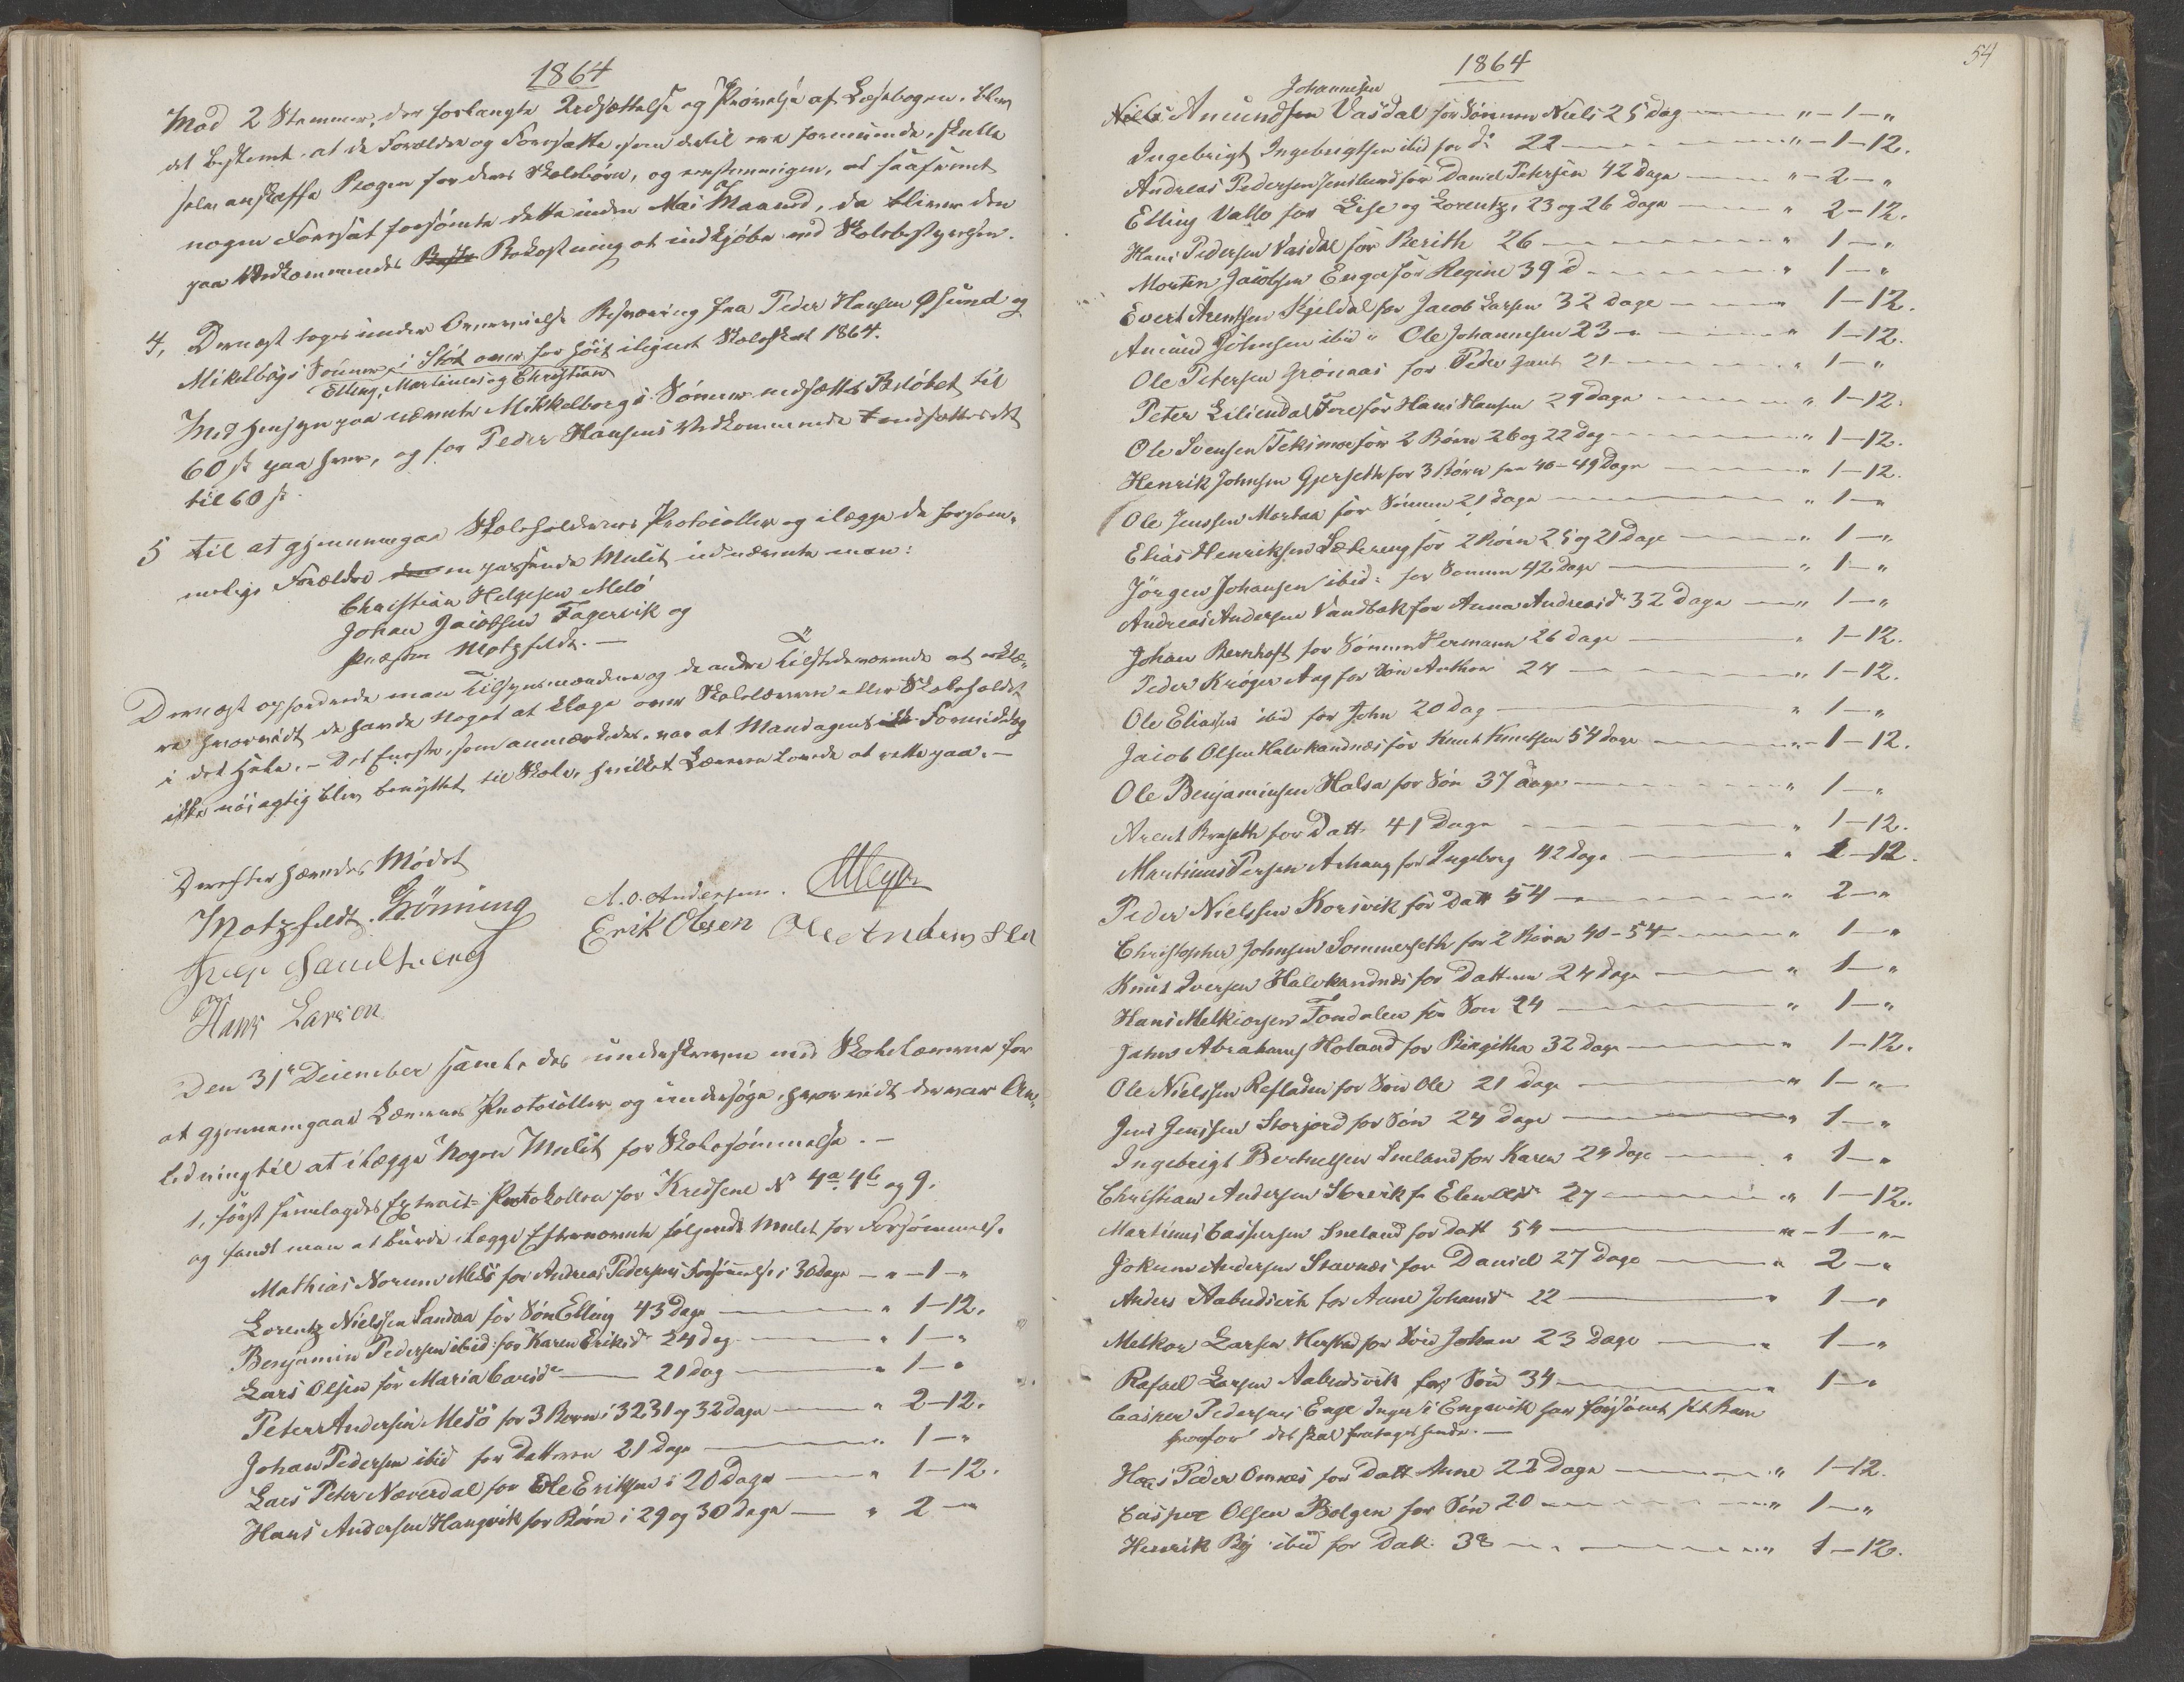 1864
Mod 2 Stemmer, der forlangte Udsættelse og Prövelse af Læsebogen, blev
det bestemt, at de Forældre og Foresatte, som dertil ere formuende, skulle
selv anskaffe Bogen for deres Skolebörn, og eenstemmigen, at saafremt
nogen Foresat forsömte dette inden Mai Maaned, da bliver den
paa Vedkommendes Bekostning at indkjöbe ved Skolebestyrelsen.
4, Dernæst toges under Overveielse Besværing fra Peder Hansen Øsund og
Mikelborgs Sönner i Stöt over for höit ilignet Skoleskat 1864.
Elling, Martinus og Christian
Med Hensyn paa nævnte Mikkelborgs Sönner nedsættes Belöbet til
60 sk paa hver, og for Peder Hansens Vedkommende nedsættes det
til 60 sk.
5 Til at gjennemgaae Skoleholdernes Protocoller og ilægge de forsöm-
melige Forældre en passende Mulct udnævnte man:
Christian Helgesen Melö
Johan Jacobsen Fagervik og
Præsten Motzfeldt. —
Dernæst opfordrede man Tilsynsmændene og de andre Tilstedeværende at erklæ-
re hvorvidt de havde Noget at klage over Skolelæreren eller Skoleholdet
i det Hele. — Det Eneste, som anmærkedes, var at Mandagens Formiddag
ikke nöiagtig blev benyttet til Skole, hvilket Læreren lovede at rette paa. —
Derefter hævedes Mödet
Motzfeldt. Grönning A. O. Andersen. Meyer
Erik Olsen Ole Andersen
Jrep Sandberg
Hans Larsen
Den 31te December samledes undertegnede med Skolelærerne for
at gjennemgaae Lærernes Protocoller og undersöge, hvorvidt der var An-
ledning til at ilægge Nogen Mulct for Skoleforsömmelse. —
1, först fremlagdes Extract-Protokollen for Kredsene No 4a, 4b og 9.
og fandt man at burde ilægge Efternævnte fölgende Mulct for Forsömmelse.
Mathias Norum Melö for Andreas Pedersens Forsömmelse i 30 Dage — „ — 1 — „
Lorentz Nielsen Sandaa for Sön Elling 43 Dage — „ 1—12.
Benjamin Pedersen ibid: for Karen Eriksd 24 dag — „ 1 — „
Lars Olsen for Maria 21 dag — „ 1 — „
Peter Andersen Melö for 3 Börn i 32, 31 og 32 dage — „ 2—12.
Johan Pedersen ibid for Datteren 21 dage — „ 1 — „
Lars Peter Næverdal for Ole Eriksen i 20 Dage — „ 1—12.
Hans Andersen Haugvik for Börn i 29 og 30 dage — „ 2 — „
54
1864
Johannesen
Niels Amundsen Vasdal for Sönnen Niels 25 dag — „ — 1 — „
Ingebrigt Ingebrigtsen ibid for do 22 — „ — 1—12.
Andreas Pedersen Jenslund for Daniel Petersen 42 Dage — „ — 2 — „
Elling Valle for Lise og Lorentz, 23 og 26 dage — „ 2—12.
Hans Pedersen Vasdal for Berith 26 — „ 1 — „
Morten Jacobsen Enge for Regine 39 d — „ 1 — „
Evert Arentsen Kjeldal for Jacob Larsen 32 dage — „ 1—12.
Amund Johnsen ibid „ Ole Johannesen 23 — „ 1—12.
Ole Petersen Grönaas for Peder 21 — „ 1 — „
Peter Liliendal Fore for Hans Hansen 29 dage — „ 1—12.
Ole Svensen Teksmo for 2 Börn 26 og 22 dag — „ 1—12.
Henrik Johnsen Gjerseth for 3 Börn fra 40—49 Dage — „ 1—12.
Ole Jenssen Morkaa for Sönnen 21 dage — „ 1 — „
Elias Henriksen Sætereng for 2 Börn 25 og 21 Dage — „ 1 — „
Jörgen Johansen ibid: for Sönnen 42 dage — „ 1 — „
Andreas Andersen Vandbak for Anna Andreasd 32 dage — „ 1 — „
Johan Bernhoft for Sönnen Hermann 26 dage — „ 1—12.
Peder Kröger Aag for Sön Anthon 24 — „ 1—12.
Ole Eliassen ibid for John 20 dag — „ 1 — „
Jacob Olsen Halvkandnæs for Knut Knutsen 54 dage — „ 1—12.
Ole Benjaminsen Halsa for Sön 37 dage — „ 1 — „
Arent Braseth for Datt 41 Dage — „ 1—12.
Martinus Persen Arhaug for Ingeborg 42 dage — „ 1—12.
Peder Nielssen Korsvik for Datt 54 — „ 2 — „
Christopher Johnsen Sommerseth for 2 Börn 40—54 — „ 1 — „
Knut Iversen Halvkandnæs for Datteren 24 dage — „ 1 — „
Hans Melkiorsen Fondalen for Sön 24 — „ 1 — „
Jahns Abrahams Holand for Birgitha 32 Dage — „ 1—12.
Ole Nielssen Resladen for Sön Ole 21 dage — „ 1 — „
Jens Jenssen Storjord for Sön 24 dage — „ 1 — „
Ingebrigt Bertnelsen Sneland for Karen 24 dage — „ 1 — „
Christian Andersen for Elen 27 — „ 1—12.
Martinus Caspersen Sneland for Datt 54 — „ — 1 — „
Jokum Andersen Stavnæs for Daniel 27 Dage — „ 2 — „
Anders Aabudsvik for Anne Johansd 22 — „ 1 — „
Melkor Larsen for Sön Johan 23 Dage — „ 1 — „
Rafael Larsen Aabudsvik for Sön 34 — „ 1 — „
Casper Pedersens Enge Inger i Engavik har forsömt sit Barn
hvorfor det skal fratages hende. —
Hans Peder Omnæs for Datt Anne 22 Dage — „ 1—12.
Casper Olsen Bolgen for Sön 20 — „ 1 — „
Henrik By ibid for Datt. 38 — „ 1—12.